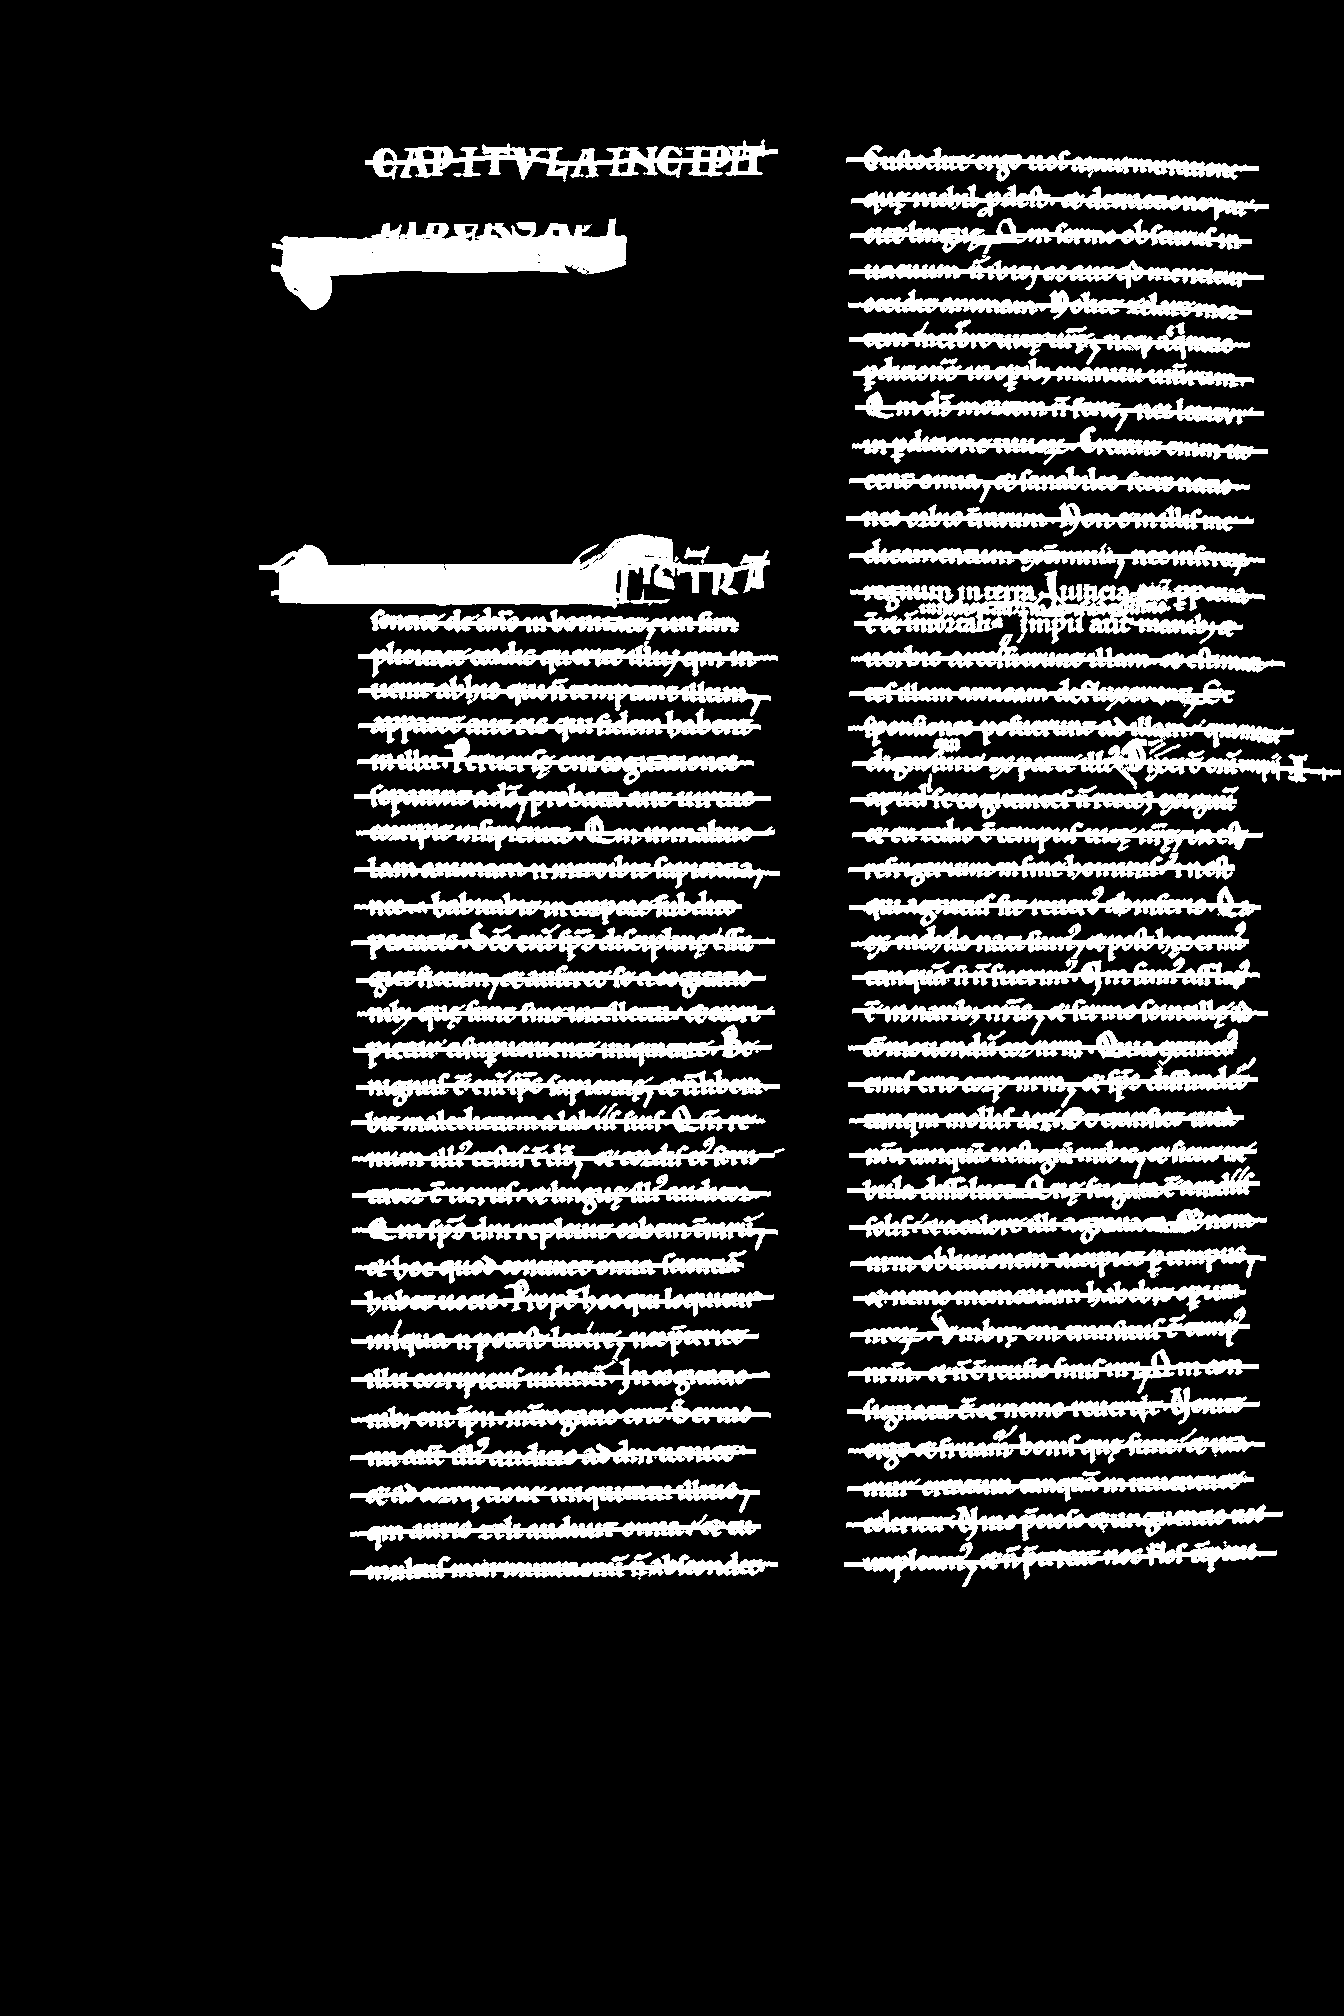 CAPITVLA INCIPIT
LIBER SAPI
TIS TRĀ
sentite de dño in bonitate, & in sim
plicitate cordis querite illū, qm in
uenit᷑ ab his qui ñ temptant illum,
apparet aut eis qui fidem habent
in illū. Peruersę em cogitationes
separant a dō, probata aut uirtus
corripit insipientes. Qm in maliuo
lam animam ñ introibit sapientia,
nec habitabit in corpore subdito
peccatis. Scs enī sps disciplinę effu
giet fictum, & auferet se a cogitatio
nib; quę sunt sine intellectu. & corri
pietur a superueniente iniquitate. Be
nignus ē enī sps sapientię, & ñ libera
bit maledicum a labiis suis. Qm re
num illi᷑ testis ē ds, & cordis ei᷑ scru
tator ē uerus. & linguę illi᷑ auditor.
Qm sps dni repleuit orbem t̄rarū,
& hoc quod continet omnia scientiā
habet uocis. Propt̄ hoc qui loquitur
iniqua ñ potest latere, nec p̄teriet
illū corripiens iudiciū. In cogitatio
nib; enī impii interrogatio erit. Sermo
nū aut illi᷑ auditio ad dm ueniet
& ad correptione iniquitatū illius,
qm auris zeli audit omnia. & tu
multus murmurationū ñ abscondet᷑
Custodite ergo uos a murmuratione
quę nichil pdest. & a detractione par
cite linguę, Qm sermo obscurus in
uacuum ñ ibit, os aut qd mentitur
occidit animam. Nolite zelare mor
tem in errore uitę ur̄ę, neq; adqratis
pditionē in opib; manuū urarum.
Qm ds mortem ñ fecit, nec letatur
in pditione uiuoꝝ. Creauit enim ut
cent omia, & sanabiles fecit natio
nes orbis t̄rarum. Non ē in illis me
dicamentum exterminii, nec inferoꝝ
regnum in terra. Iusticia enī ppetua
ē & inmortalis. Impii aut manib; &
uerbis arcessierunt illam. & estiman
tes illam amicam defluxerunt, & 
sponsiones posuerunt ad illam. quoniā
digni sunt ex parte illi᷑. Dixert̄ enī impii
apud se cogitantes ñ recte, exiguū
& cū tedio ē tempus uitę nr̄ę, & ñ est
refrigerium in fine hominis. & ñ est
qui agnitus sit reuers᷑ ab inferis. Qa
ex nichilo nati sum᷑, & post hęc erim᷑
tanquā si ñ fuerim᷑. Qm fum᷑ afflat᷑
ē in narib; nr̄is, & sermo scintillę ad
comouendū cor nrm. Qua extincta
cinis erit corp nrm, & sps diffundet᷑
tanqm mollis aer. & transiet uita
nr̄a tanquā uestigiū nubis, & sicut ne
bula dissoluet᷑. Quę fugata ē a radiis
solis. & a calore illi᷑ aggrauata. & nom̄
nrm obliuionem accipiet p tempus,
& nemo memoriam habebit operū
nroꝝ. Vmbrę em transitus ē temp᷑
nrm. & ñ ē reuersio finis nri, Qm con
signata ē. & nemo reuertit᷑. Uenite
ergo & fruam᷑ bonis quę sunt. & uta
mur creatura tanquā in iuuentute
celeriter. Vino p̄cioso & unguentis nos
impleam᷑, & ñ p̄tereat nos flos tēporis